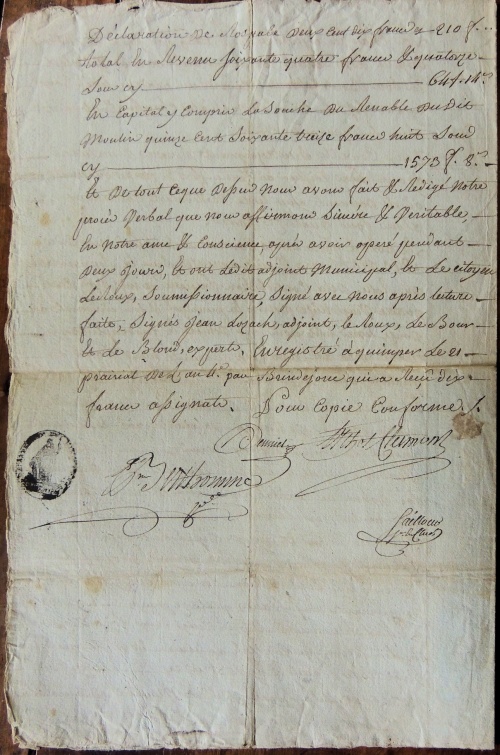 Déclaration de deux cent dix francs 210 f.
total En Revenu soixante quatre francs & quatorze
Sous cy — 64 f. 14 s.
En Capital y Compris La Souche du dudit
Moulin quinze cent Soixante treize francs huit Sous
cy — 1573 f. 8 s.
Et de tout ceque dessus nous avons fait & Rédigé notre
procès Verbal que nous affirmons Sincère & Veritable,
En notre ame & Conscience, après avoir operé pendant
deux Jours, & ont ledit adjoint Municipal, & Le citoyen
Leroux, Soumissionnaire Signé avec nous après lecture
faite, Signés Jean adjoint, le Roux, Le Bour
& Le Blond, expert. Enregistré à quimper Le 21
prairial de L'an 4e. par qui a Reçu dix
francs assignats. Pour Copie Conforme /.